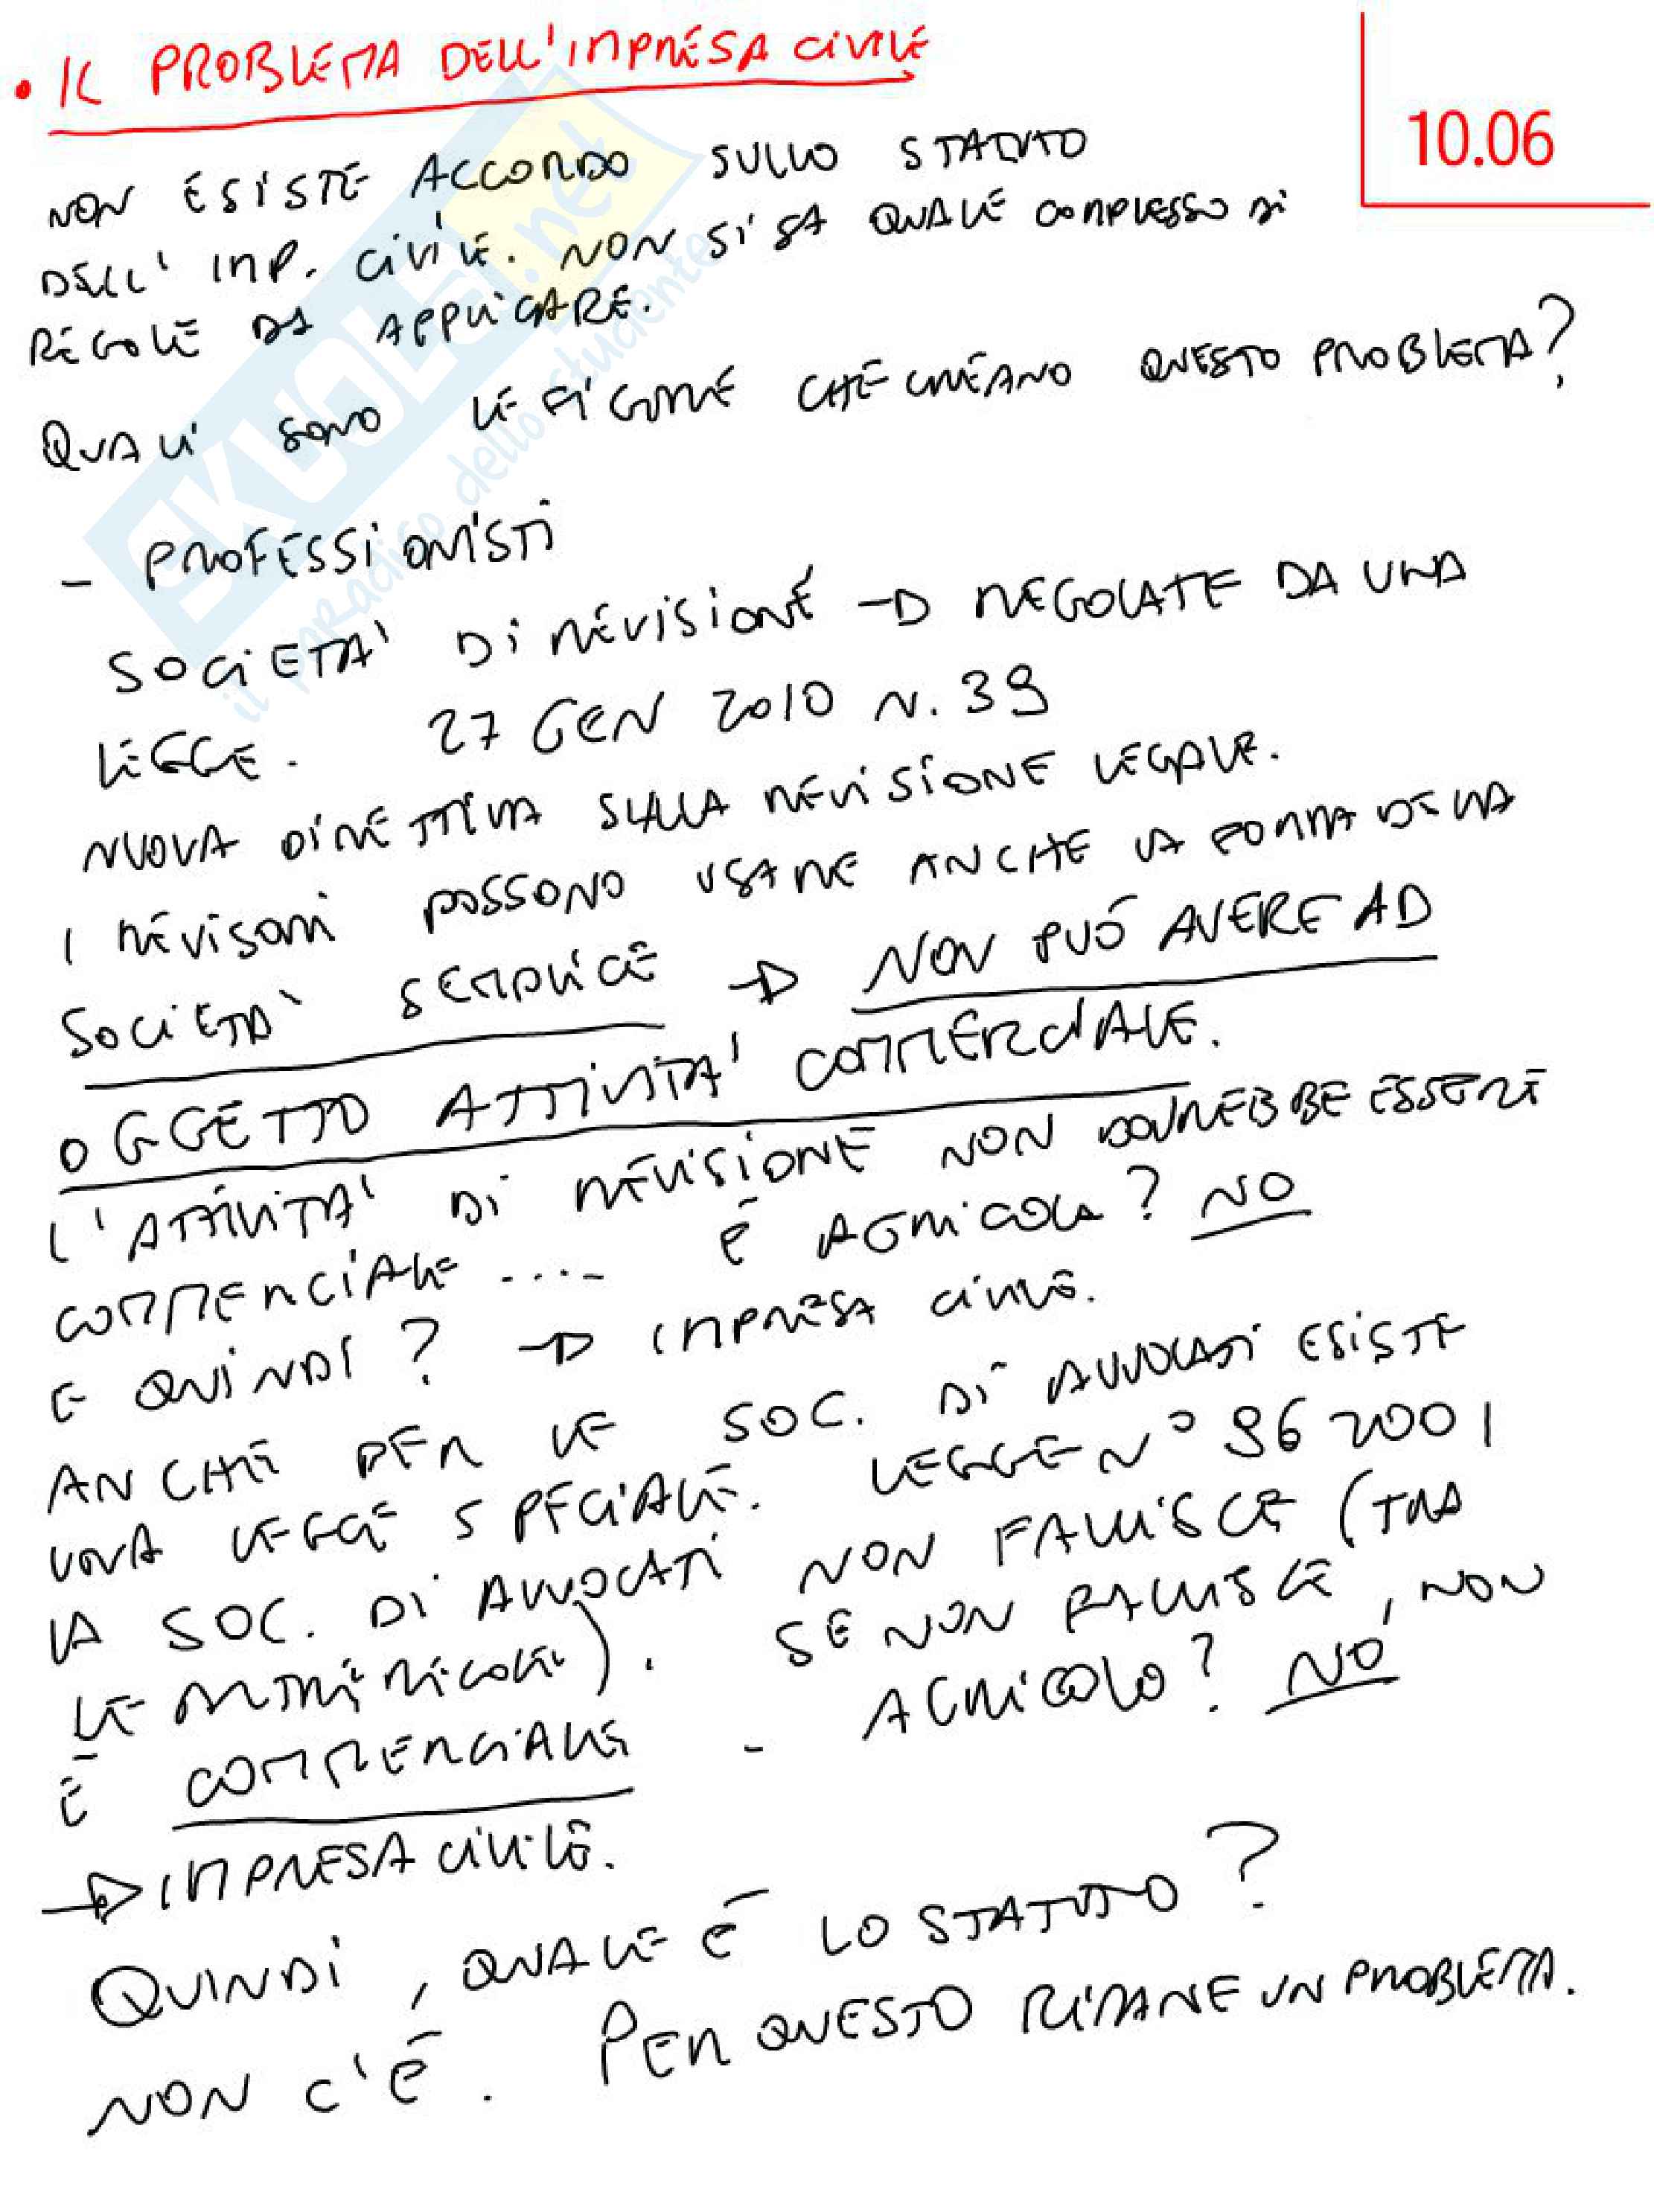 • IL PROBLEMA DELL'IMPRESA CIVILE
10.06
NON ESISTE ACCORDO SULLO STATUTO
DELL' IMP. CIVILE. NON SI SA QUALE COMPLESSO DI
REGOLE DA APPLICARE.
QUALI SONO LE FIGURE CHE CREANO QUESTO PROBLEMA?
- PROFESSIONISTI
SOCIETA' DI REVISIONE → REGOLATE DA UNA
LEGGE. 27 GEN 2010 N. 39
NUOVA DIRETTIVA SULLA REVISIONE LEGALE.
I REVISORI POSSONO USARE ANCHE LA FORMA DELLA
SOCIETA' SEMPLICE → NON PUÓ AVERE AD
OGGETTO ATTIVITA' COMMERCIALE.
L'ATTIVITA' DI REVISIONE NON DOVREBBE ESSERE
COMMERCIALE .... É AGRICOLA? NO
E QUINDI? → IMPRESA CIVILE.
ANCHE PER LE SOC. DI AVVOCATI ESISTE
UNA LEGGE SPECIALE. LEGGE N° 96 2001
LA SOC. DI AVVOCATI NON FALLISCE (TRA
LE ALTRE REGOLE). SE NON FALLISCE, NON
É COMMERCIALE - AGRICOLO? NO
→ IMPRESA CIVILE.
QUINDI, QUALE É LO STATUTO?
NON C'É. PER QUESTO RIMANE UN PROBLEMA.
SKUOLA.net
il paradiso dello studente